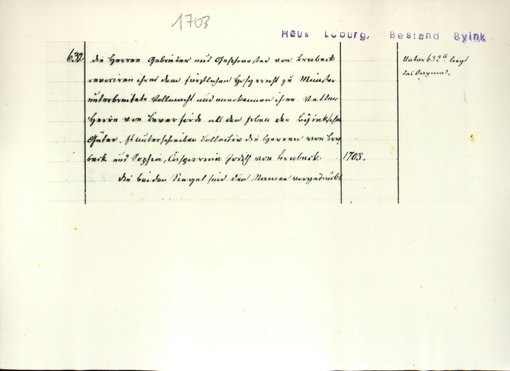 1703
Haus Loburg, Bestand Byink
632 Die Herren Gebrüder und Geschwester von Brabeck
revociren ihre dem fürstlichen Hofgericht zu Münster
unterbreitete Vollmacht und anerkennen ihren Vetter
Herrn von Beverförde als den Erben der Byink'schen
Güter. Es unterschreiben die Herren von Bra
beck und Sophia, von Brabeck.
1703.
Die beiden Siegel sind den Namen vorgedruckt
Unter 632a liegt
das Original.